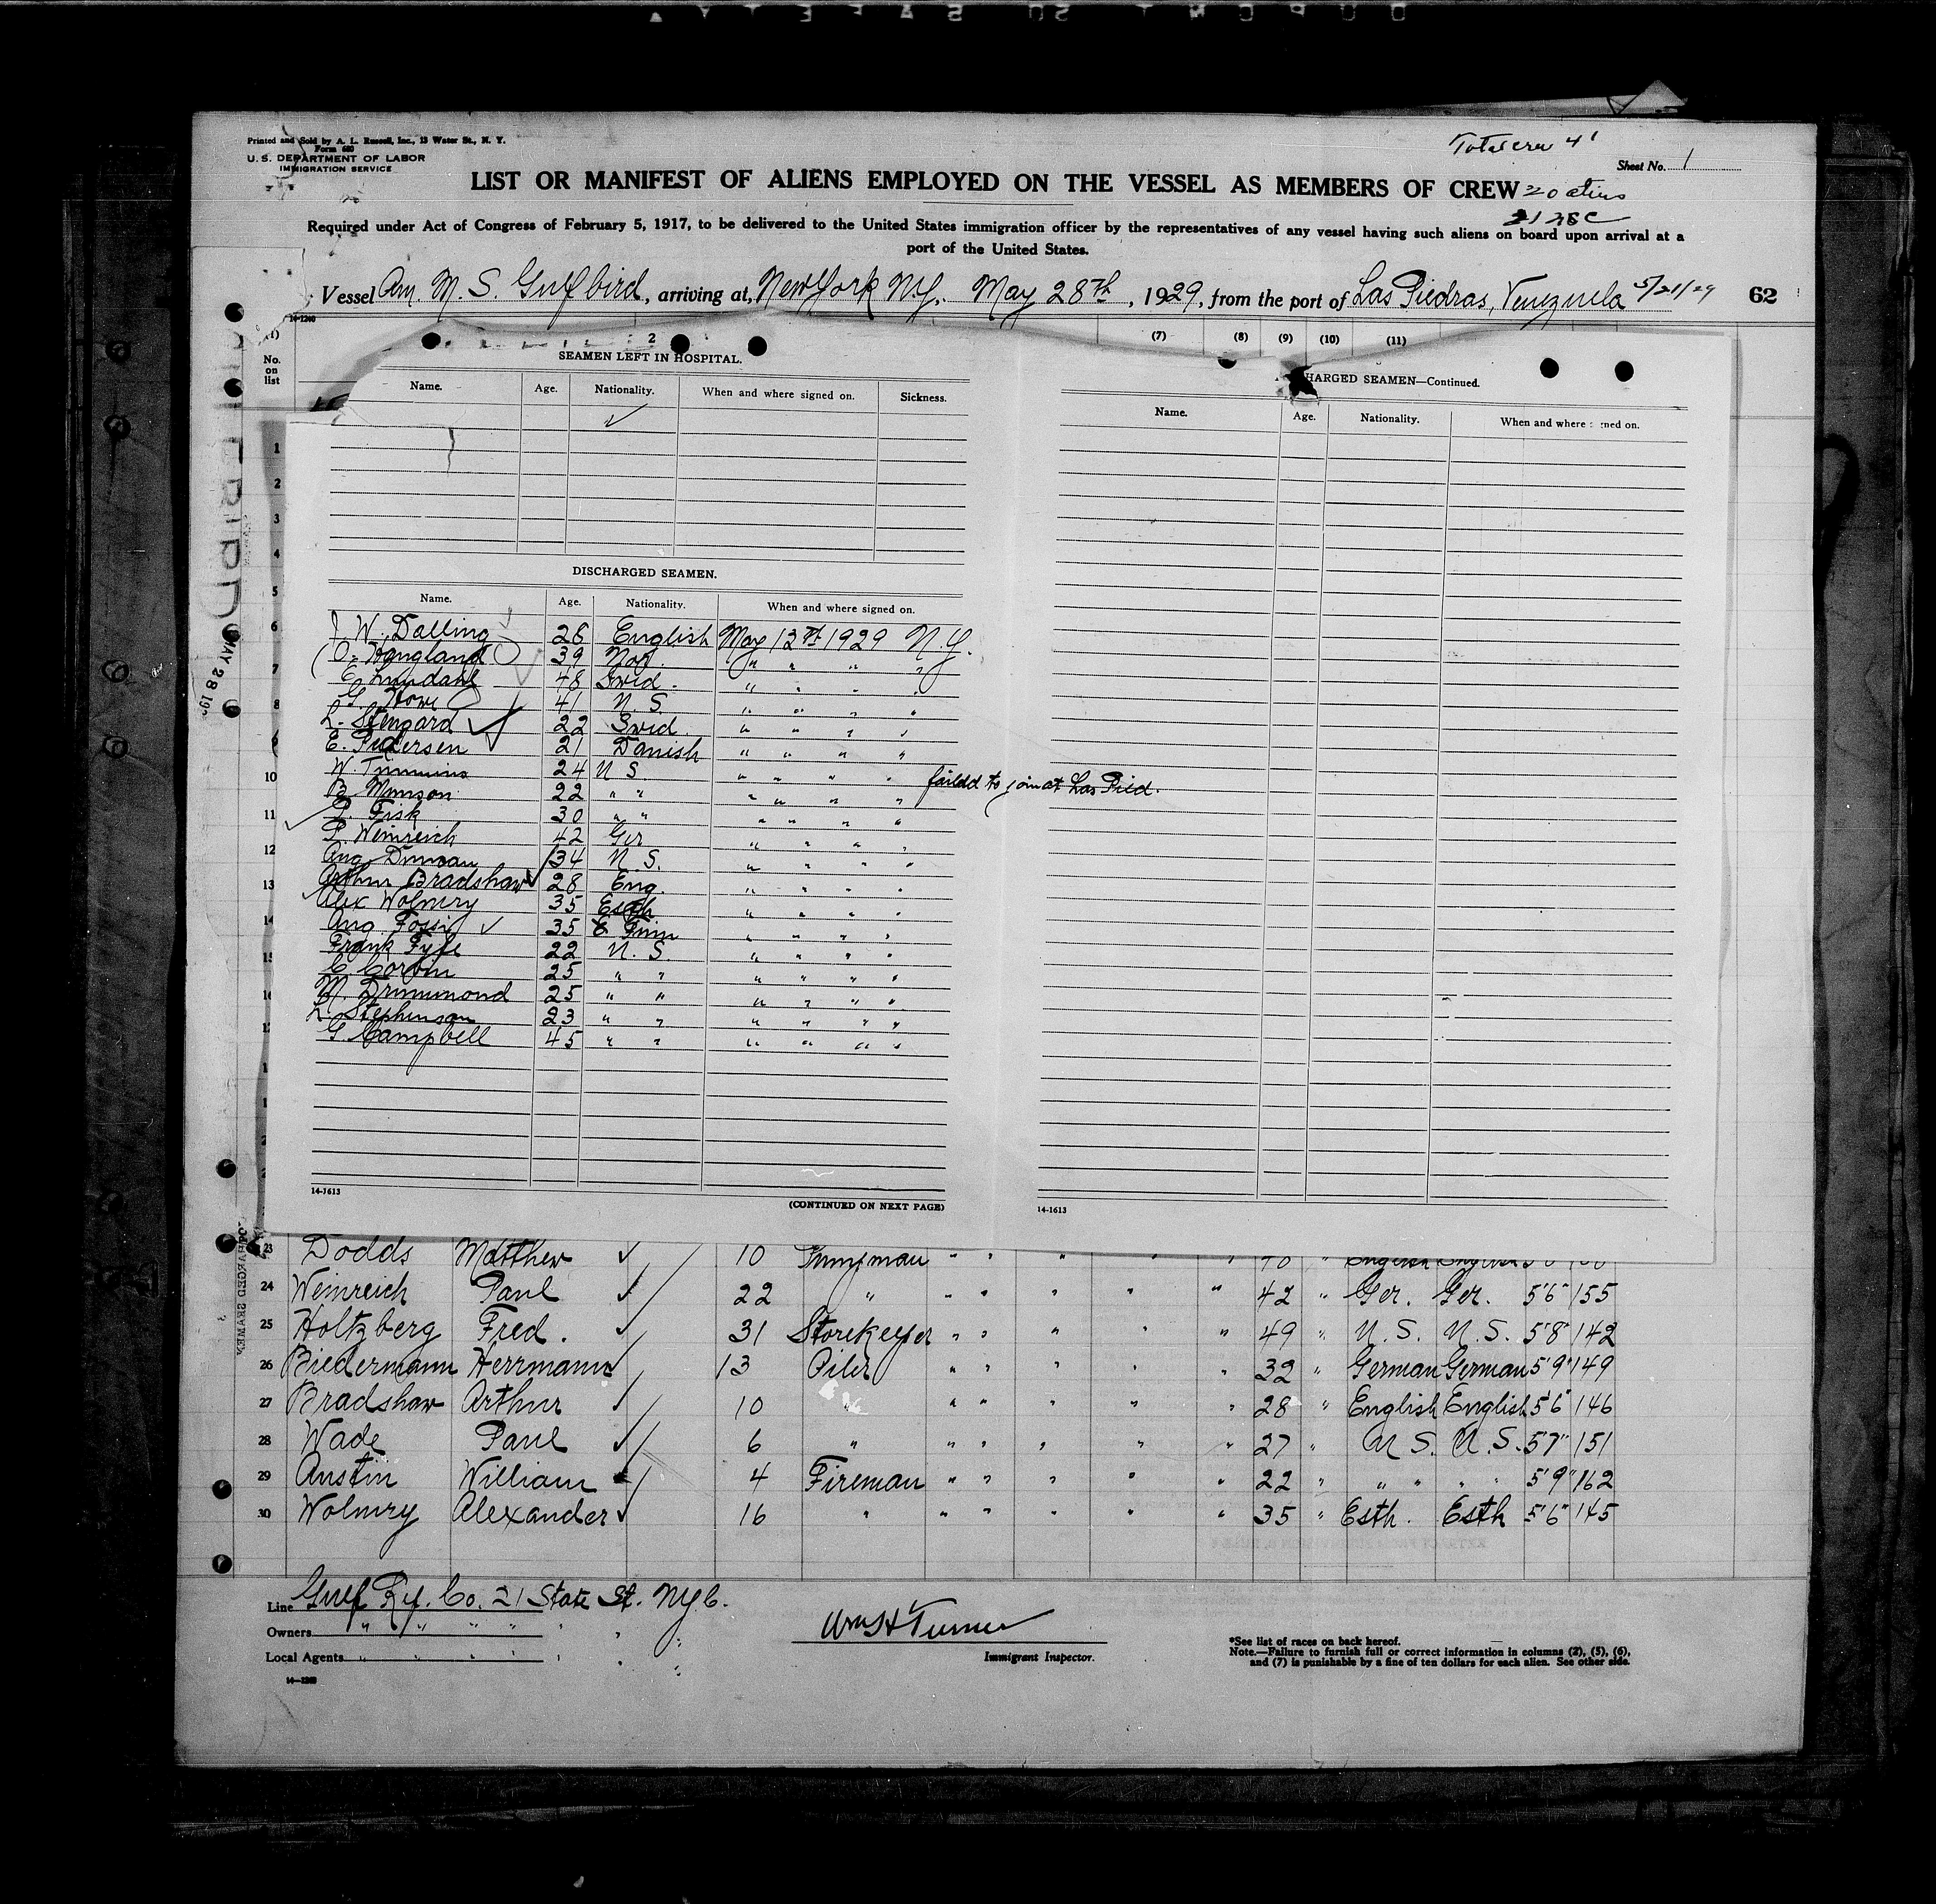 Printed and Sold by A. L. Russell, Inc., 13 Water St., N. Y.
Form 680
U. S. DEPARTMENT OF LABOR
IMMIGRATION SERVICE
Total crew 41
Sheet No. 1
LIST OR MANIFEST OF ALIENS EMPLOYED ON THE VESSEL AS MEMBERS OF CREW
20 aliens
21 USC
Required under Act of Congress of February 5, 1917, to be delivered to the United States immigration officer by the representatives of any vessel having such aliens on board upon arrival at a
port of the United States.
Vessel Am. M. S. Gulfbird, arriving at, New York NY. May 28th, 1929, from the port of Las Piedras, Venezuela 5/21/29
62
14-1240
(1) (7) (8) (9) (10) (11)
No. on list
2
SEAMEN LEFT IN HOSPITAL.
Name. Age. Nationality. When and where signed on. Sickness.
DISCHARGED SEAMEN.
Name. Age. Nationality. When and where signed on.
J. W. Dalling 28 English May 13th 1929 N.Y.
O. Haugland 39 Nor. " " " "
E. Lundahl 48 Swed. " " " "
G. Howe 41 U. S. " " " "
L. Stengard 22 Swed. " " " "
E. Pedersen 21 Danish " " " "
W. Timmins 24 U S. " " " " faild to join at Las Pied.
B. Munson 22 " " " " " "
P. Fisk 30 " " " " " "
P. Weinreich 42 Ger " " " "
Ang. Duncan 34 U. S. " " " "
Arthur Bradshaw 28 Eng. " " " "
Alex Wolmry 35 Esth " " " "
Aug. Fossi 35 Finn " " " "
Frank Fyfe 22 U. S. " " " "
C. Corvin 25 " " " " " "
M. Drummond 25 " " " " " "
L. Stephenson 23 " " " " " "
G. Campbell 45 " " " " " "
14-1613
(CONTINUED ON NEXT PAGE)
CHARGED SEAMEN—Continued.
Name. Age. Nationality. When and where signed on.
14-1613
MAY 28 192
23 Dodds Matthew 10 Pumpman " " " " " 40 " English English
24 Weinreich Paul 22 " " " " " " 42 " Ger. Ger. 5'6" 155
25 Holtzberg Fred. 31 Storekeeper " " " " " 49 " U. S. U. S. 5'8" 142
26 Biedermann Herrmann 13 Oiler " " " " " 32 " German German 5'9" 149
27 Bradshaw Arthur 10 " " " " " " 28 " English English 5'6" 146
28 Wade Paul 6 " " " " " " 27 " U S. U. S. 5'7" 151
29 Austin William 4 Fireman " " " " " 22 " " " " " 5'9" 162
30 Wolmry Alexander 16 " " " " " " 35 " Esth. Esth 5'6" 145
Line Gulf Rf. Co. 21 State St. N.Y.C.
Owners " " " " " " "
Local Agents " " " " " " "
Wm H Turner
Immigrant Inspector.
*See list of races on back hereof.
Note.—Failure to furnish full or correct information in columns (2), (5), (6),
and (7) is punishable by a fine of ten dollars for each alien. See other side.
14—1240